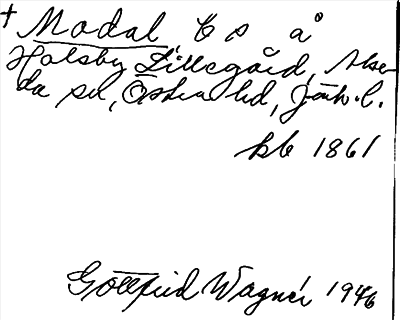 + Modal C s å
Holsby Lillegård, Alse-
da sn, Östra hd, Jönk. l.
hb 1861
Gottfrid Wagnér 1946